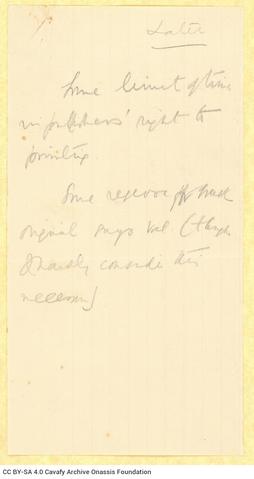 Later
Some limit of time
in publishers' right to
printing.
Some reserve for
original (though
I hardly consider this
necessary)
CC BY-SA 4.0 Cavafy Archive Onassis Foundation